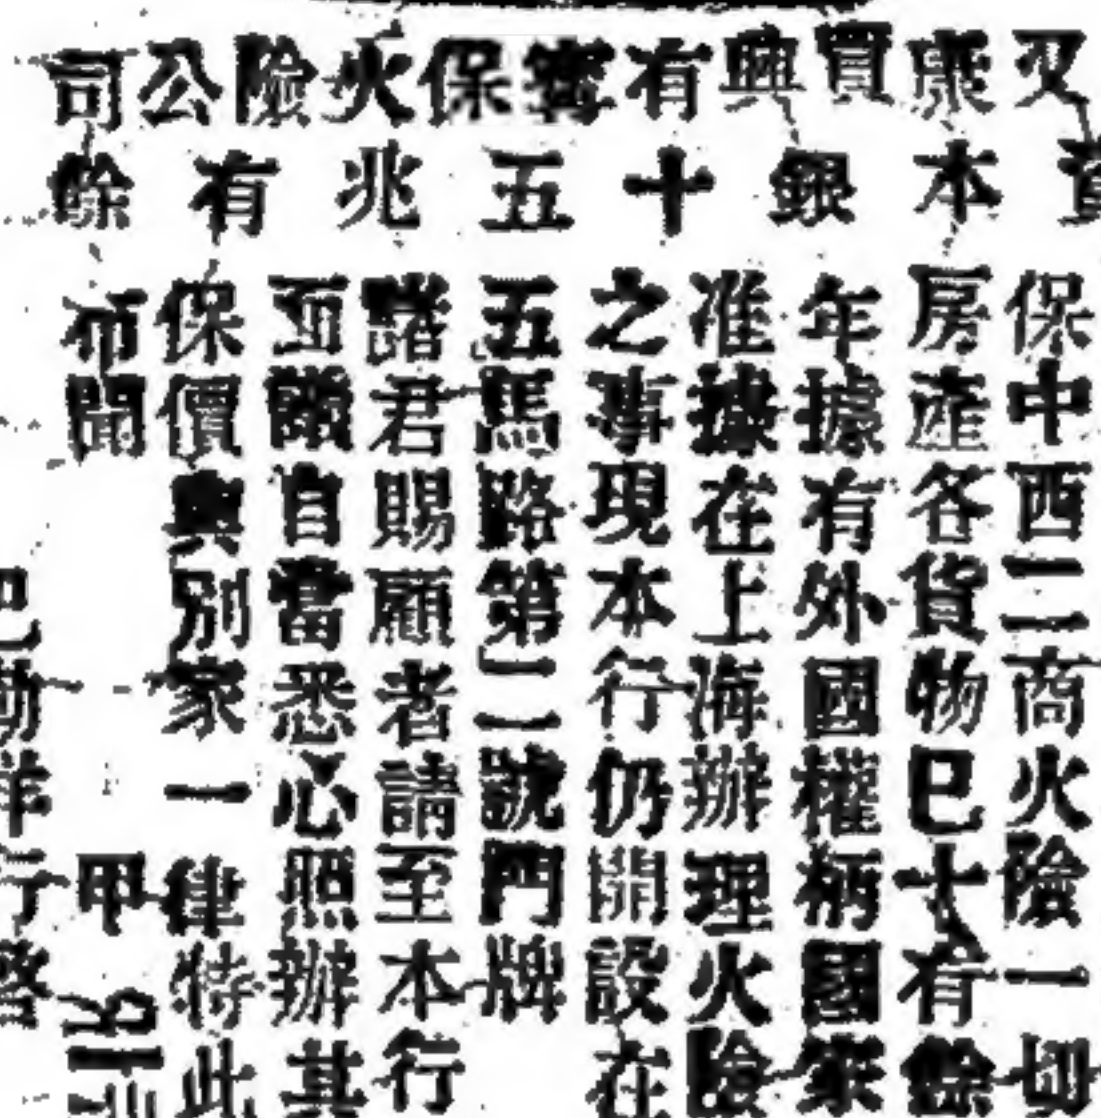 又買興有寗保火險公司
資本銀十五兆有餘
保中西二商火險一切
房產各貨物巳十有餘
年據有外國權柄國家
准據在上海辦理火險
之事現本行仍開設在
五馬路第二號門牌
諸君賜顧者請至本行
面議自當悉心照辦其
保價與別家一律特此
布聞 甲
洋行啓